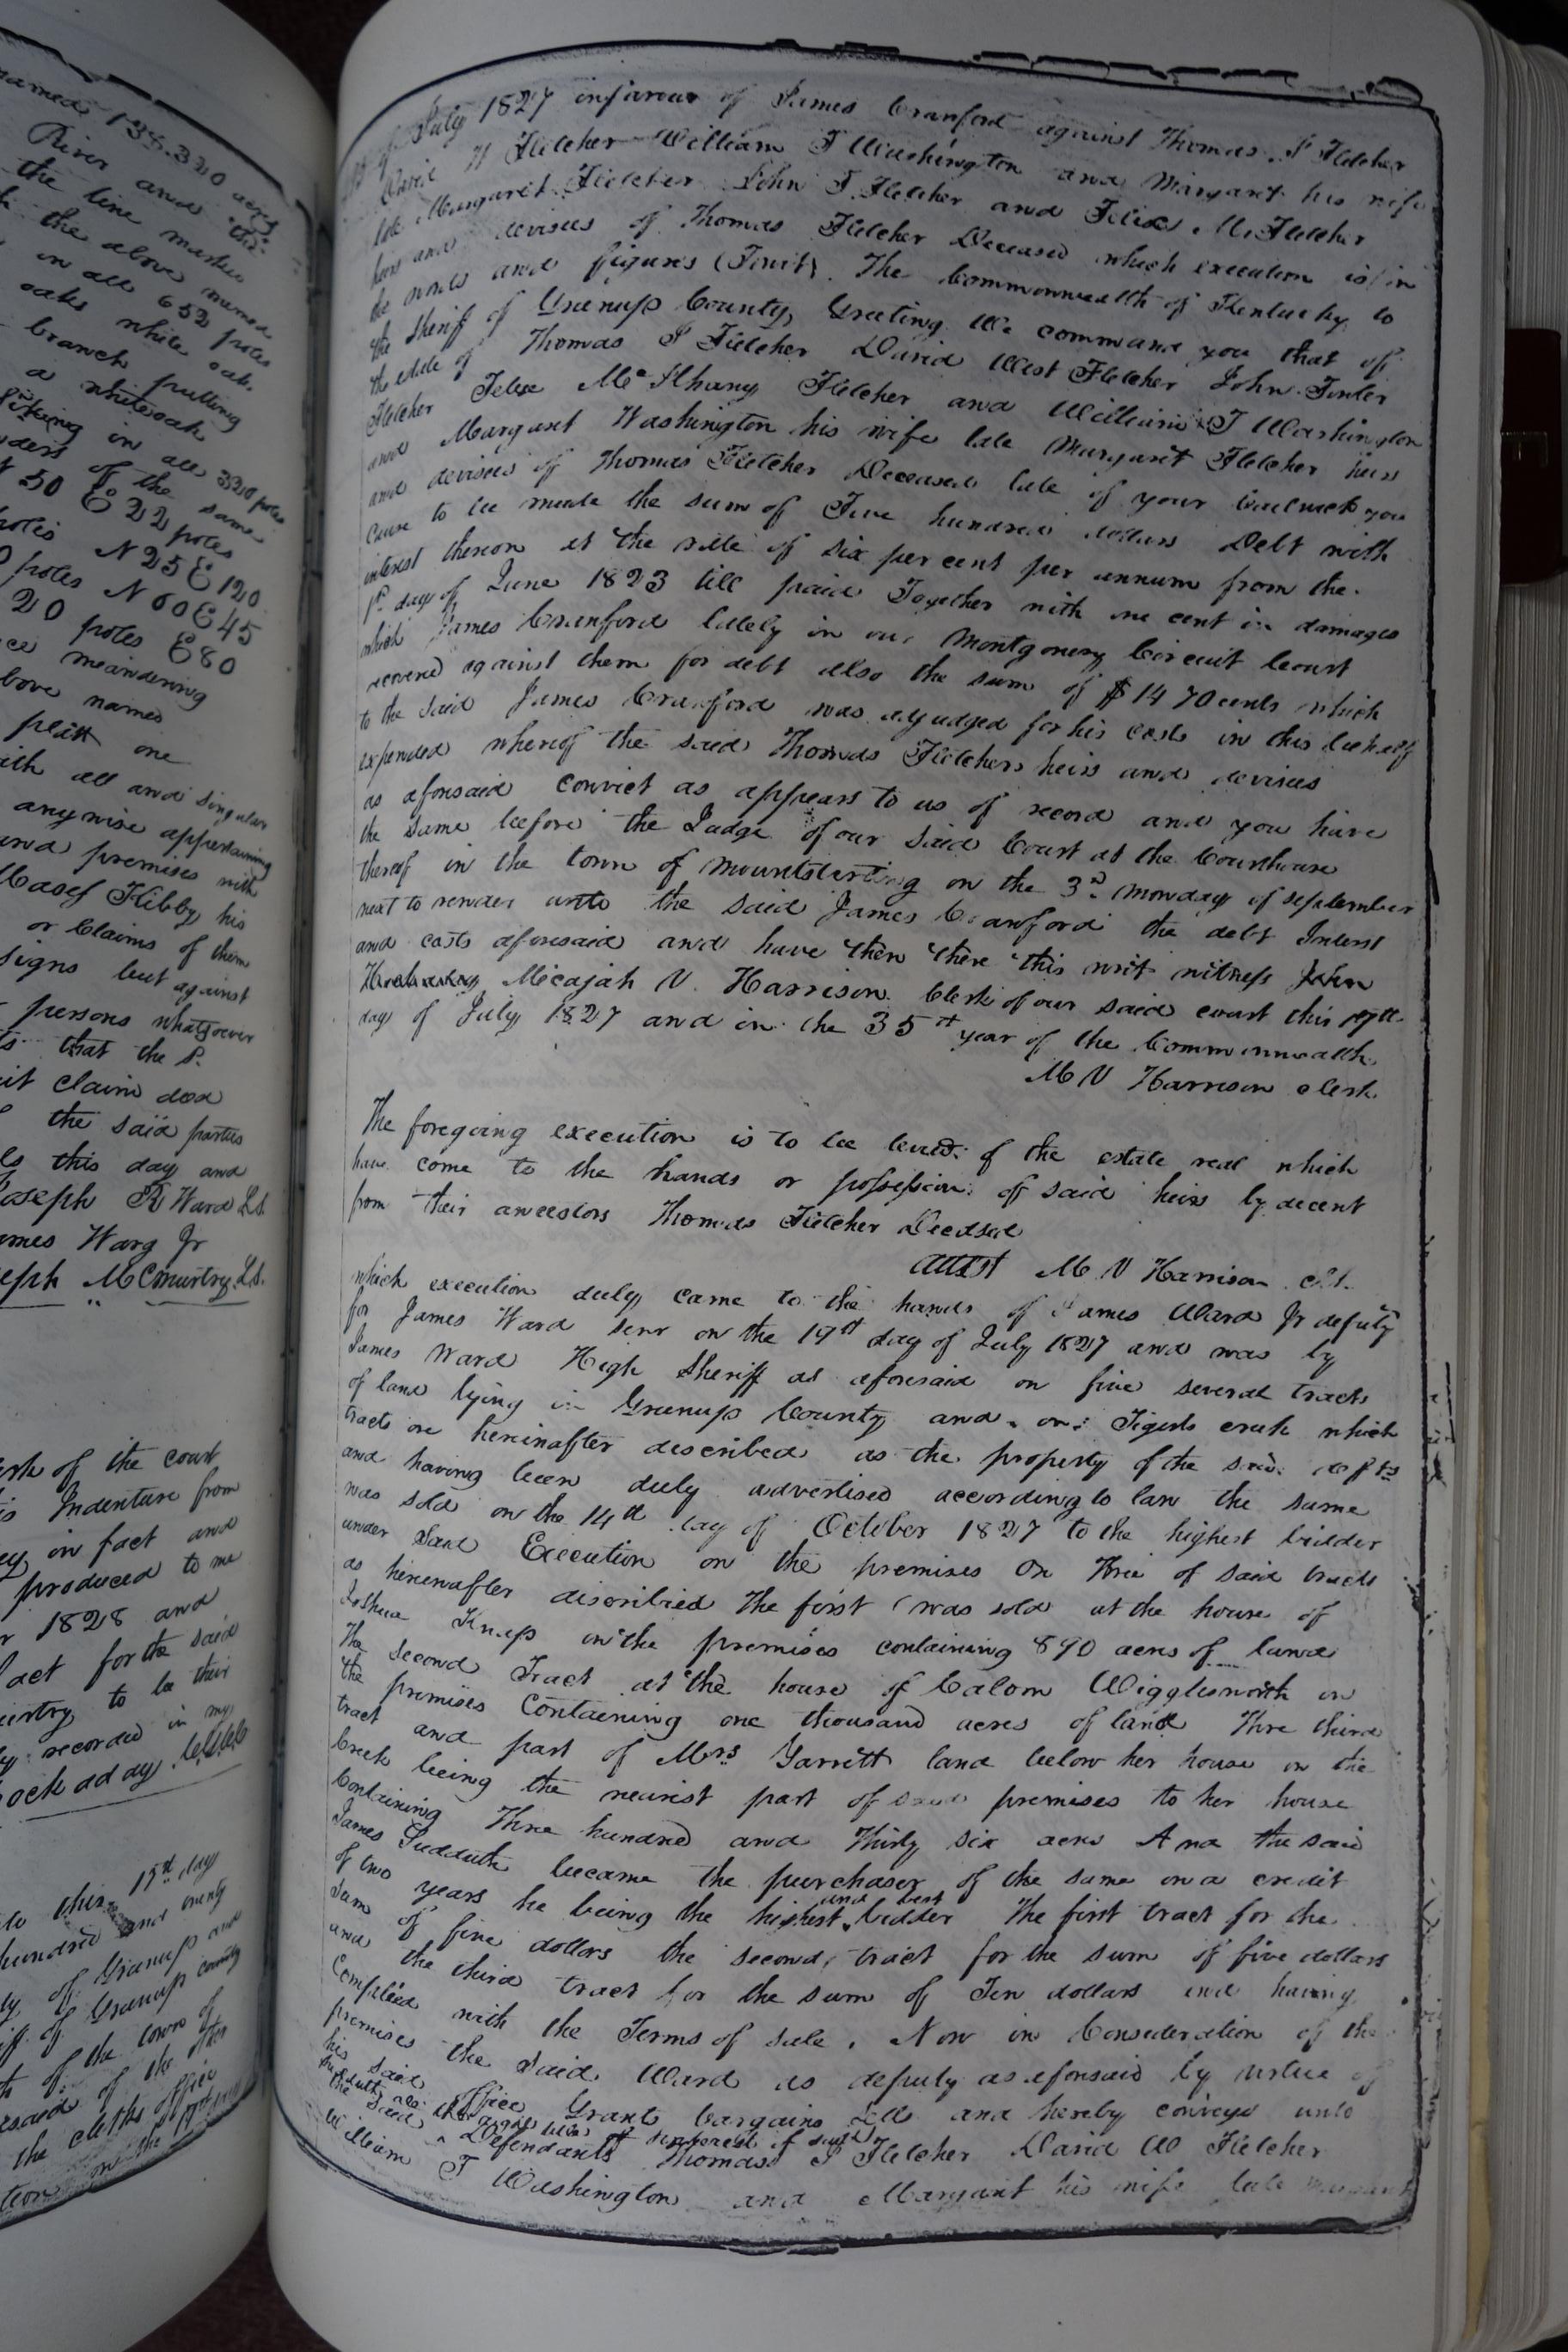 named 138.320 acres
River and the
the line marked
the above named
in all 652 poles
oaks white oak
branch putting
a whiteoak
in all 320 poles
of the same
N 50 E 22 poles
poles N 25 E 120
poles N 60 E 45
20 poles E 80
meandering
above named
platt one
with all and singular
anywise appertaining
and premises with
Kibby his
or Claims of them
signs but against
persons whatsoever
that the s.
Claim doa
the said parties
this day and
Joseph R Ward L.S.
James Warg Jr
Joseph McMurtry L.S.
of the court
Indenture from
in fact and
produced to me
1828 and
act for the said
to be their
recorded in my
this 15th day
hundred and
of Greenup and
of Greenup county
of the town of
of the
the clerks office
on the
July 1827 infavour of James Cranford against Thomas I Fletcher
David W Fletcher William T Washington and Margaret his wife
late Margaret Fletcher John T Fletcher and Felix M. Fletcher
heirs and devisees of Thomas Fletcher Deceased which execution is in
the words and figures (Towit). The Commonwealth of Kentucky to
the Sheriff of Greenup County, Greeting We command you that of
the estate of Thomas I Fletcher David West Fletcher John Fowler
Fletcher Felix McIlhany Fletcher and William T Washington
and Margaret Washington his wife late Margaret Fletcher heirs
and devisees of Thomas Fletcher Deceased late of your bailiwick you
Cause to be made the sum of Five hundred dollars Debt with
interest thereon at the rate of six per cent per annum from the
1st day of June 1823 till paid Together with one cent in damages
which James Cranford lately in our Montgomery Circuit Court
recovered against them for debt also the sum of $14 70 cents which
to the said James Cranford was adjudged for his costs in this behalf
expended whereof the said Thomas Fletchers heirs and devisees
as aforesaid convict as appears to us of record and you have
the same before the Judge of our said Court at the Courthouse
thereof in the town of mountsterling on the 3d monday of september
next to render unto the said James Cranford the debt Interst
and costs aforesaid and have then there this writ witness John
Micajah V. Harrison Clerk of our said court this 17th
day of July 1827 and in the 35th year of the Commonwealth
M V Harrison clerk
The foregoing execution is to be levied of the estate real which
have come to the hands or possession of said heirs by decent
from their ancestors Thomas Fletcher Decdsed
Attst M V Harrison
which execution duly came to the hands of James Ward Jr deputy
for James Ward senr on the 19th day of July 1827 and was by
James Ward High Sheriff as aforesaid on five several tracts
of land lying in Greenup County and on Tigerts creek which
tracts are hereinafter described as the property of the said defts
and having been duly advertised according to law the same
was sold on the 14th day of October 1827 to the highest bidder
under said Execution on the premises on Three of said tracts
as hereinafter discribed The first was sold at the house of
Joshua Knap on the premises containing 890 acres of land
The second Tract at the house of Calom Wigglesworth on
the premises Containing one thousand acres of land Thre third
tract and part of Mrs Garrett land below her house on the
Creek being the nearist part of said premises to her house
Containing Three hundred and Thirty six acres And the said
James Sudduth became the purchaser of the same on a credit
of two years he being the highest and best bidder The first tract for the
sum of five dollars the second tract for the sum of five dollars
and the third tract for the sum of Ten dollars and having
Complied with the Terms of sale. Now in Consideration of the
premises the said Ward as deputy as aforesaid by virtue of
his said office Grants bargains sells and hereby conveys unto
Sudduth all the right title interest of
the said Defendants Thomas I Fletcher David W Fletcher
William T Washington and Margaret his wife late